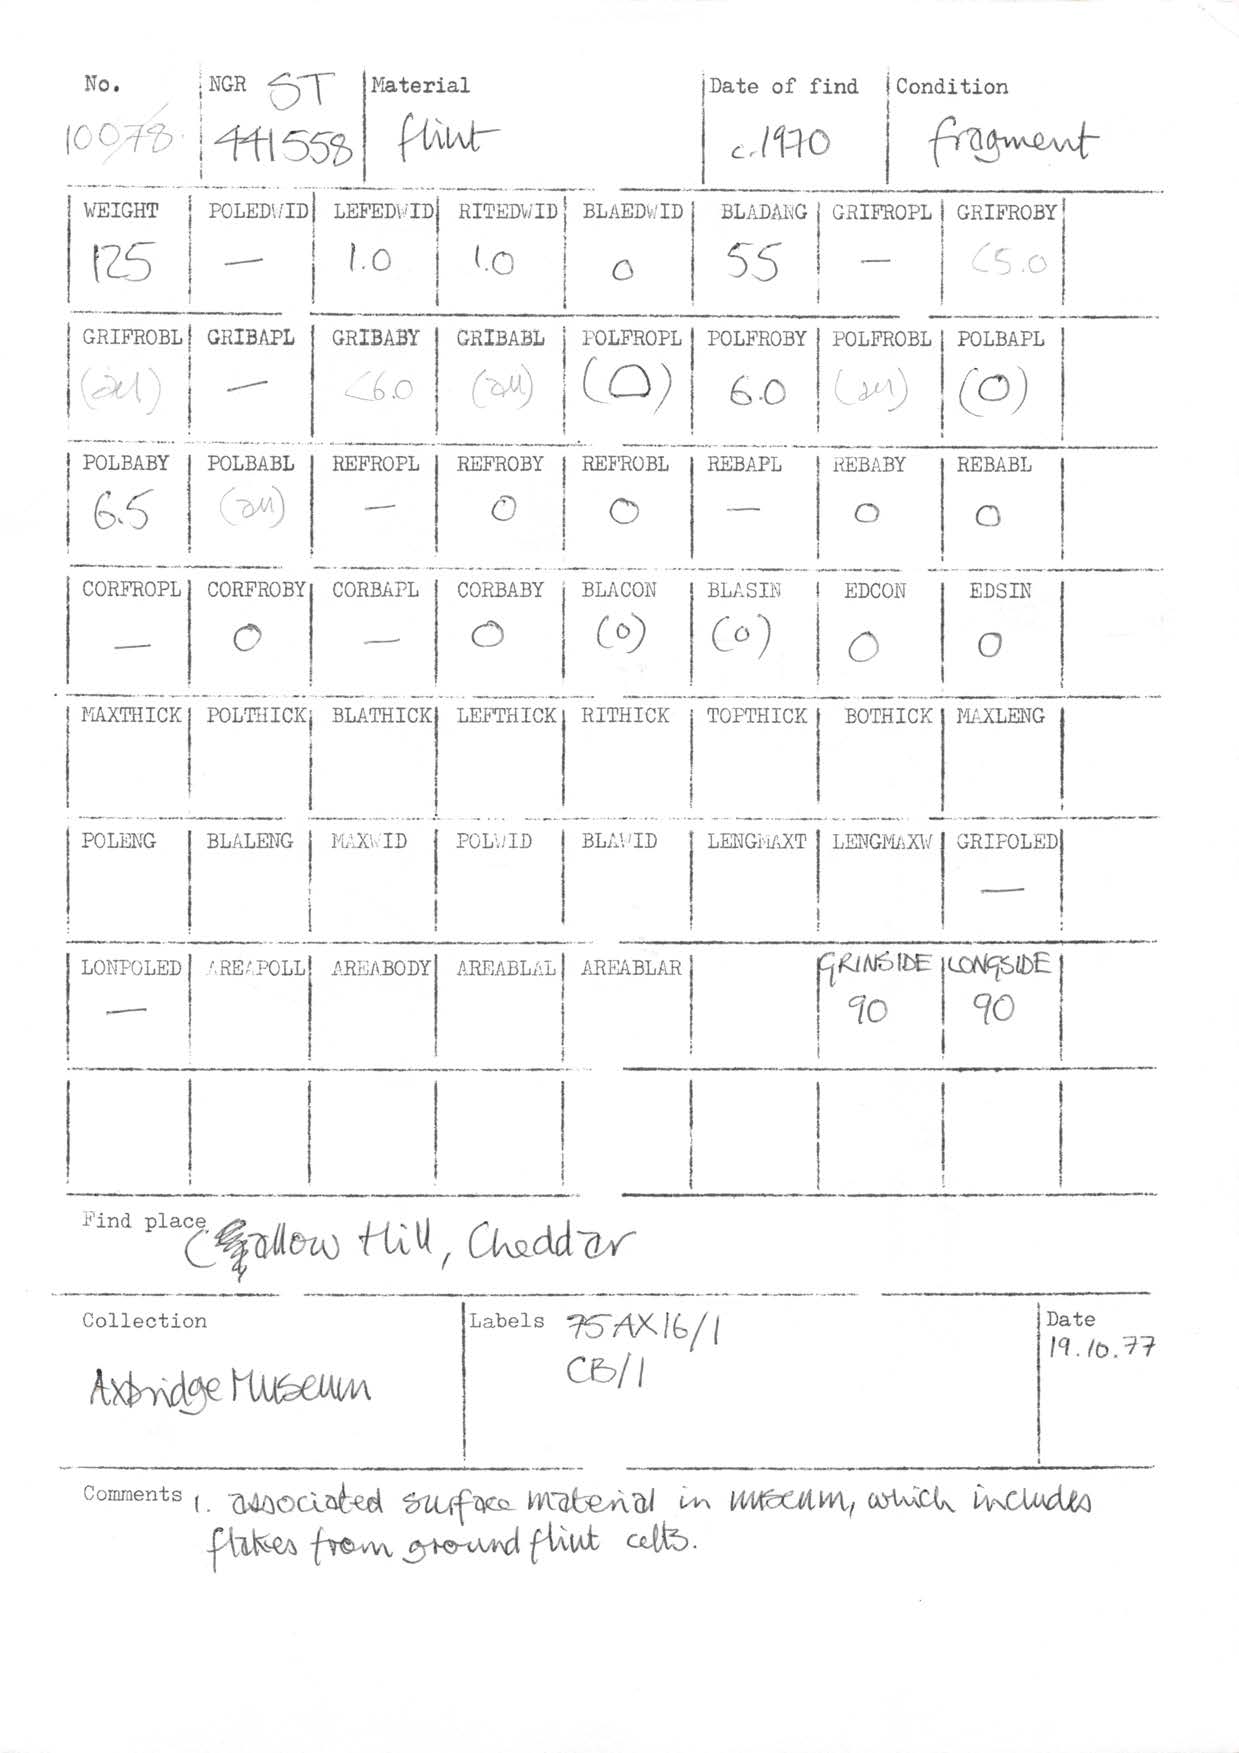 No. NGR ST Material Date of find Condition
10078 441558 flint c.1970 fragment
WEIGHT POLEDWID LEFEDWID RITEDWID BLAEDWID BLADANG GRIFROPL GRIFROBY
125 — 1.0 1.0 0 55 — <5.0
GRIFROBL GRIBAPL GRIBABY GRIBABL POLFROPL POLFROBY POLFROBL POLBAPL
(all) — <6.0 (all) (0) 6.0 (all) (0)
POLBABY POLBABL REFROPL REFROBY REFROBL REBAPL REBABY REBABL
6.5 (all) — 0 0 — 0 0
CORFROPL CORFROBY CORBAPL CORBABY BLACON BLASIN EDCON EDSIN
— 0 — 0 (0) (0) 0 0
MAXTHICK POLTHICK BLATHICK LEFTHICK RITHICK TOPTHICK BOTHICK MAXLENG
POLENG BLALENG MAXWID POLWID BLAWID LENGMAXT LENGMAXW GRIPOLED
—
LONPOLED AREAPOLL AREABODY AREABLAL AREABLAR GRINSIDE LONGSIDE
— 90 90
Find place
Callow Hill, Cheddar
Collection Labels 75AX16/1 Date
CB/1 19.10.77
Axbridge Museum
Comments 1. associated surface material in museum, which includes
flakes from ground flint celts.